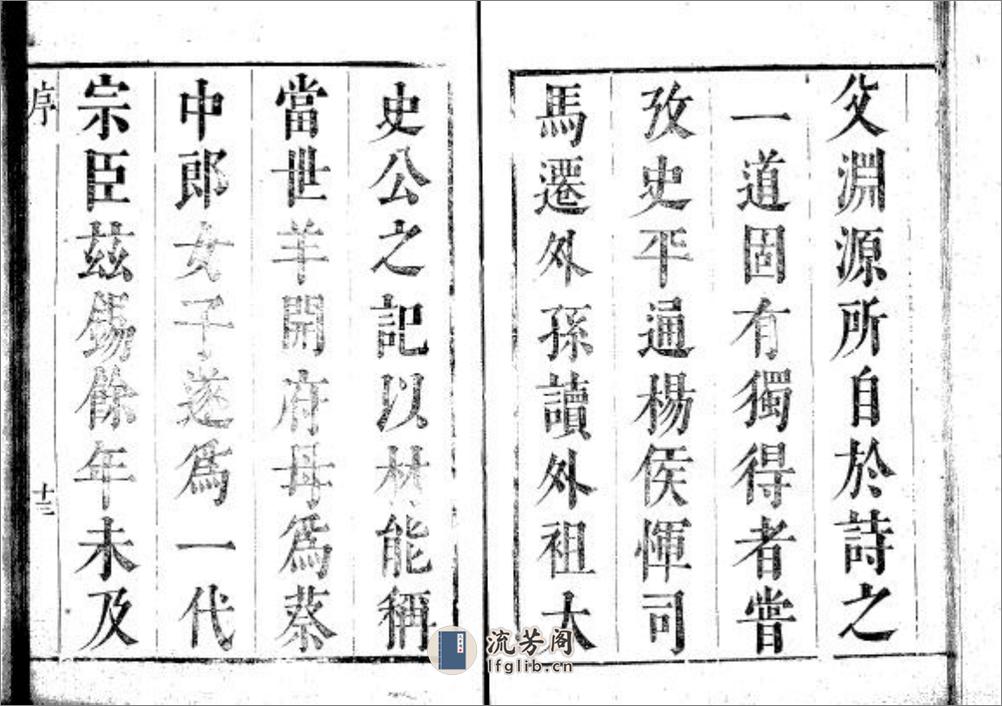 父淵源所自於詩之
一道固有獨得者嘗
攷史平通楊侯惲司
馬遷外孫讀外祖太
史公之記以材能稱
當世羊開府母為蔡
中郎女子遂為一代
宗臣茲錫餘年未及
序
十三
流芳阁
lfglib.cn